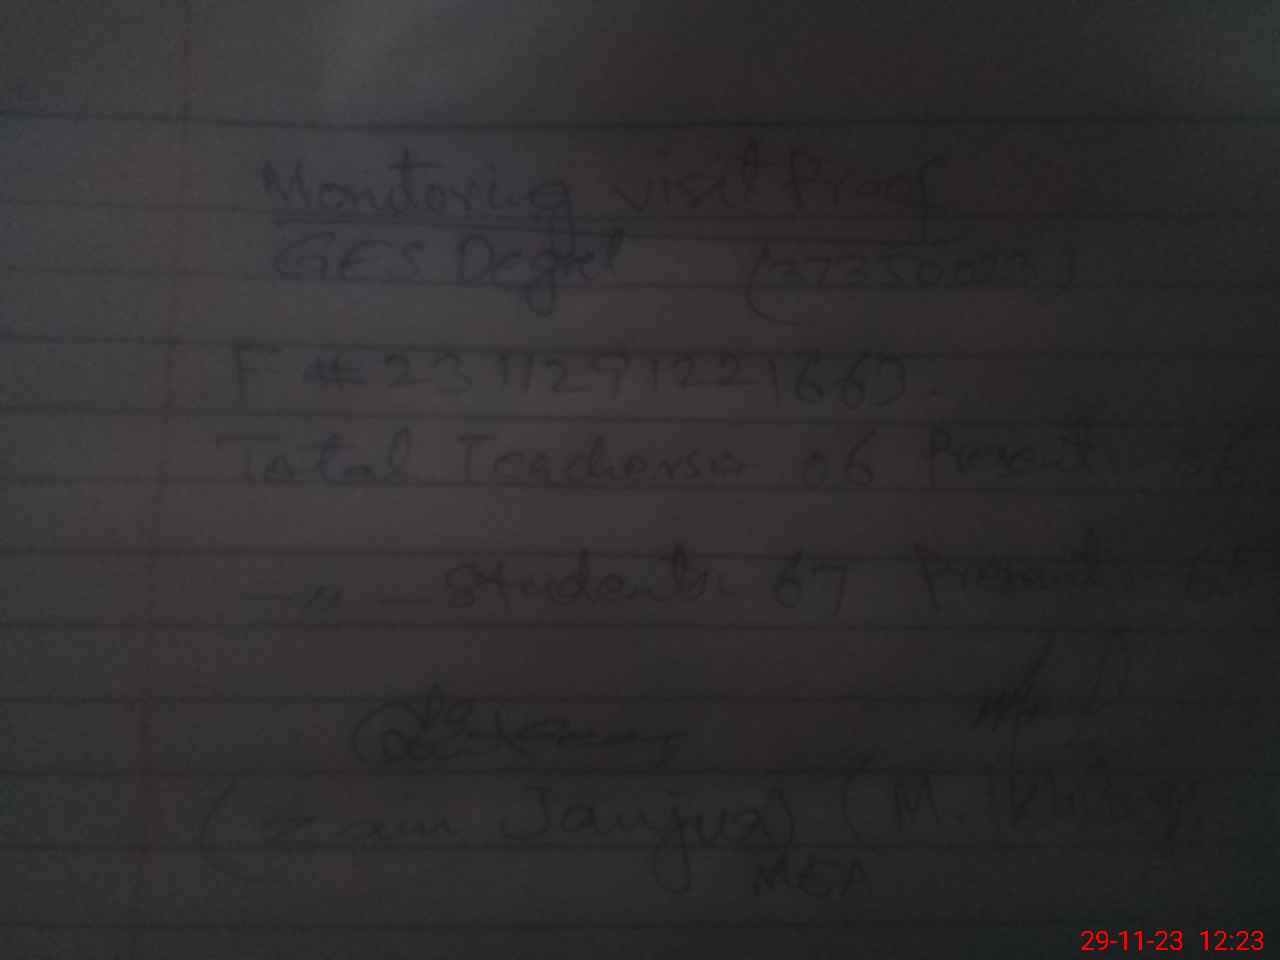 Monitoring visit Proof
GES Degal (37350023)
F # 231129122166
Total Teachers 06 Present 06
—〃— Students. 67 Present
Janjua) (M.
MEA
29-11-23 12:23